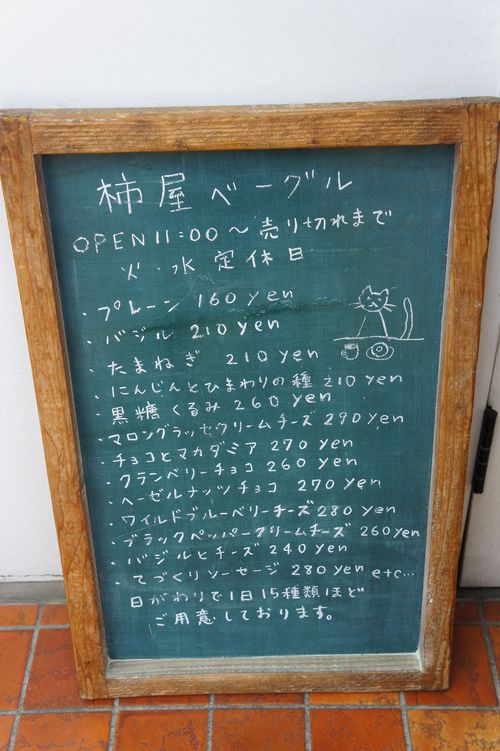 柿屋ベーグル
OPEN 11:00〜売り切れまで
火・水 定休日
・プレーン 160 yen
・バジル 210 yen
・たまねぎ 210 yen
・にんじんとひまわりの種 210 yen
・黒糖くるみ 260 yen
・マロングラッセクリームチーズ 290 yen
・チョコとマカダミア 270 yen
・クランベリーチョコ 260 yen
・ヘーゼルナッツチョコ 270 yen
・ワイルドブルーベリーチーズ 280 yen
・ブラックペッパークリームチーズ 260 yen
・バジルとチーズ 240 yen
・てづくりソーセージ 280 yen etc…
日がわりで1日15種類ほど
ご用意しております。